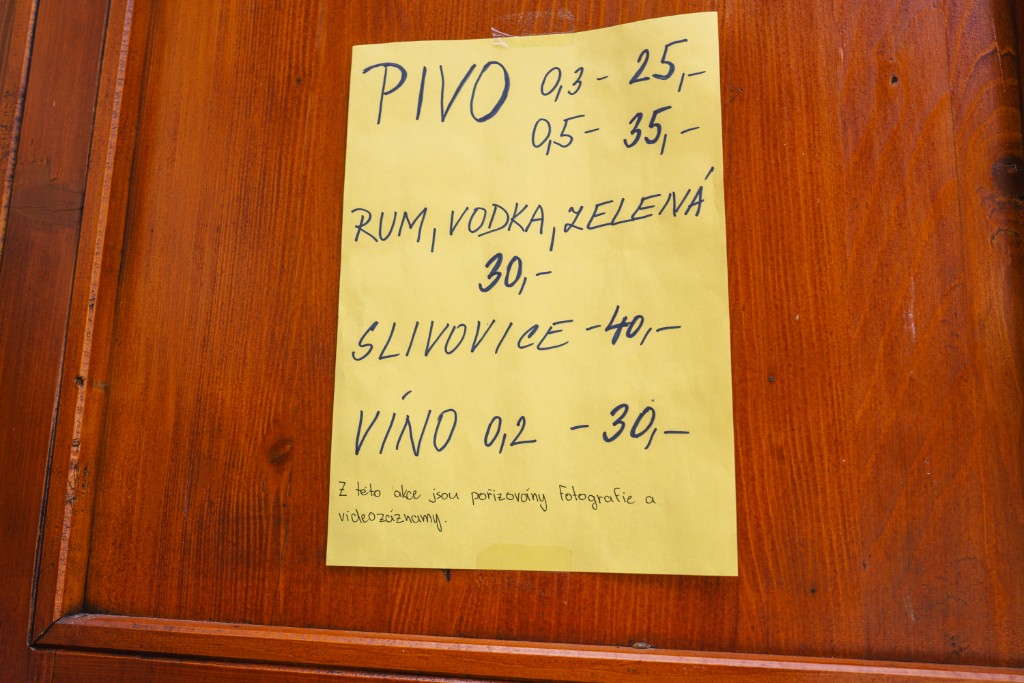 PIVO 0,3 - 25,-
0,5 - 35,-
RUM, VODKA, ZELENÁ
30,-
SLIVOVICE - 40,-
VÍNO 0,2 - 30,-
Z této akce jsou pořizovány fotografie a
videozáznamy.